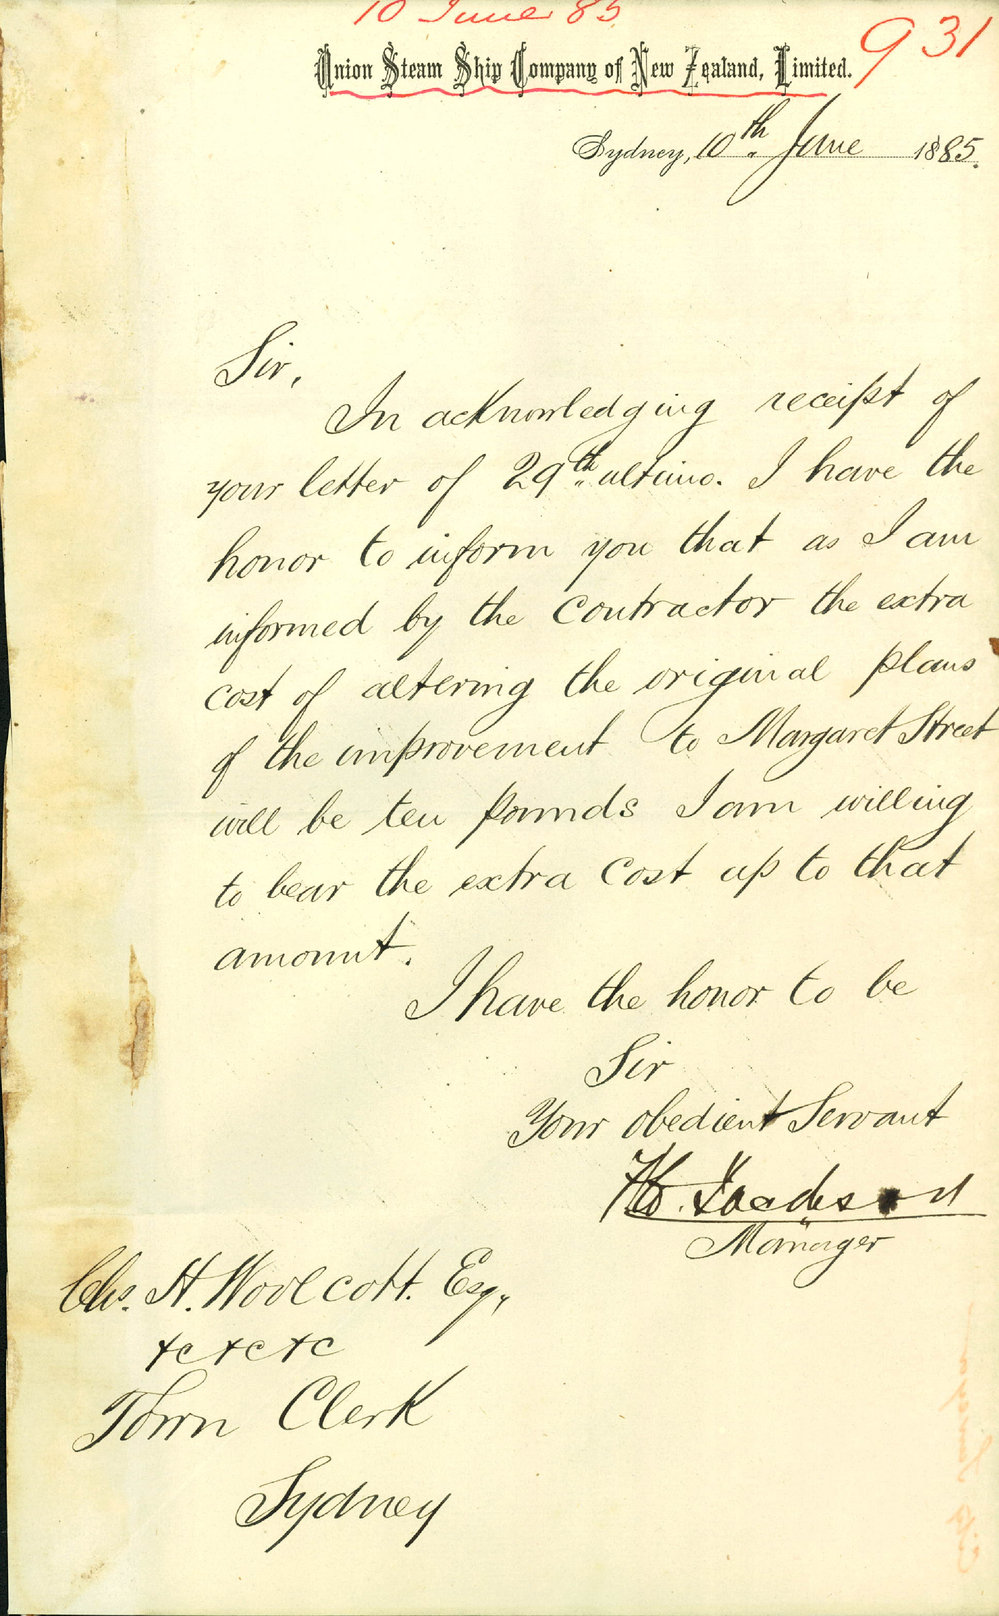 10 June 85
931
Union Steam Ship Company of New Zealand, Limited.
Sydney, 10th June 1885.
Sir,
In acknowledging receipt of
your letter of 29th ultimo. I have the
honor to inform you that as I am
informed by the Contractor the extra
cost of altering the original plans
of the improvement to Margaret Street
will be ten pounds I am willing
to bear the extra cost up to that
amount.
I have the honor to be
Sir
Your obedient Servant
Manager
Chs. H. Woolcott. Esq,
&c &c &c
Town Clerk
Sydney